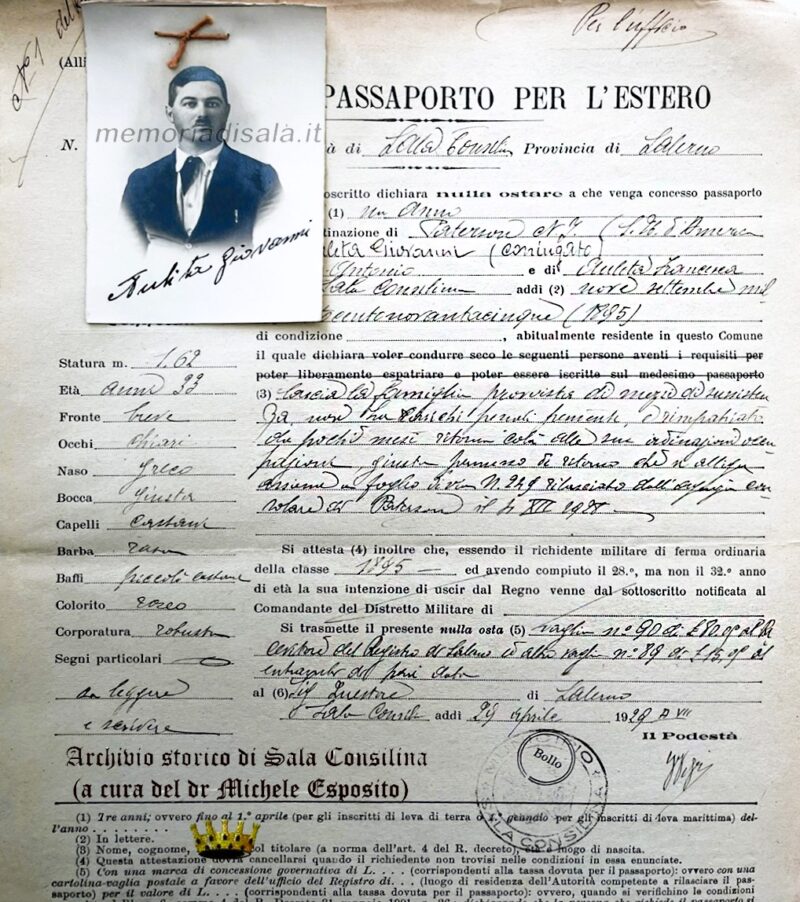 Per l'ufficio
N° 1
(Alli
PASSAPORTO PER L'ESTERO
memoriadisala.it
N.
à di Sala Consilina Provincia di Salerno
oscritto dichiara nulla ostare a che venga concesso passaporto
(1) un anno
tinazione di Paterson N.J. (S.U. d'America
uleta Giovanni (coniugato)
Antonio e di Auleta Francesca
Sala Consilina addì (2) nove settembre mil
centonovantacinque (1895)
Auleta Giovanni
di condizione , abitualmente residente in questo Comune
il quale dichiara voler condurre seco le seguenti persone aventi i requisiti per
poter liberamente espatriare e poter essere iscritte sul medesimo passaporto
(3) lascia la famiglia provvista di mezzi di sussisten
za, non ha carichi penali pendenti, è rimpatriato
da pochi mesi ritorna colà alle sue ordinazioni occu
pazioni, giusta permesso di ritorno che si allega
assieme a foglio di via N. 249 rilasciato dall'agenzia con
solare di Paterson il 4 XII 1928
Statura m. 1.62
Età anni 33
Fronte breve
Occhi chiari
Naso greco
Bocca giusta
Capelli castani
Barba rasa
Baffi piccoli castani
Colorito roseo
Corporatura robusta
Segni particolari
sa leggere
e scrivere
Si attesta (4) inoltre che, essendo il richidente militare di ferma ordinaria
della classe 1895 ed avendo compiuto il 28.°, ma non il 32.° anno
di età la sua intenzione di uscir dal Regno venne dal sottoscritto notificata al
Comandante del Distretto Militare di
Si trasmette il presente nulla osta (5) vaglia n° 90 di £ 80,00 al Ri
cevitore del Registro di Salerno ed altro vaglia n° 89 di £ 15,00 al
di pari data
al (6) Sig Questore di Salerno
Sala Consilina addì 29 aprile 1929 A VII
Il Podestà
Bollo
MUNICIPIO
SALA CONSILINA
Archivio storico di Sala Consilina
(a cura del dr Michele Esposito)
(1) Tre anni; ovvero fino al 1.° aprile (per gli inscritti di leva di terra o 1.° gennaio per gli inscritti di leva marittima) del-
l'anno . . . . . . . .
(2) In lettere.
(3) Nome, cognome, col titolare (a norma dell'art. 4 del R. decreto), età e luogo di nascita.
(4) Questa attestazione dovrà cancellarsi quando il richiedente non trovisi nelle condizioni in essa enunciate.
(5) Con una marca di concessione governativa di L. . . . (corrispondenti alla tassa dovuta per il passaporto): ovvero con una
cartolina-vaglia postale a favore dell'ufficio del Registro di. . . (luogo di residenza dell'Autorità competente a rilasciare il pas-
saporto) per il valore di L. . . . (corrispondenti alla tassa dovuta per il passaporto); ovvero, quando si verifichino le condizioni